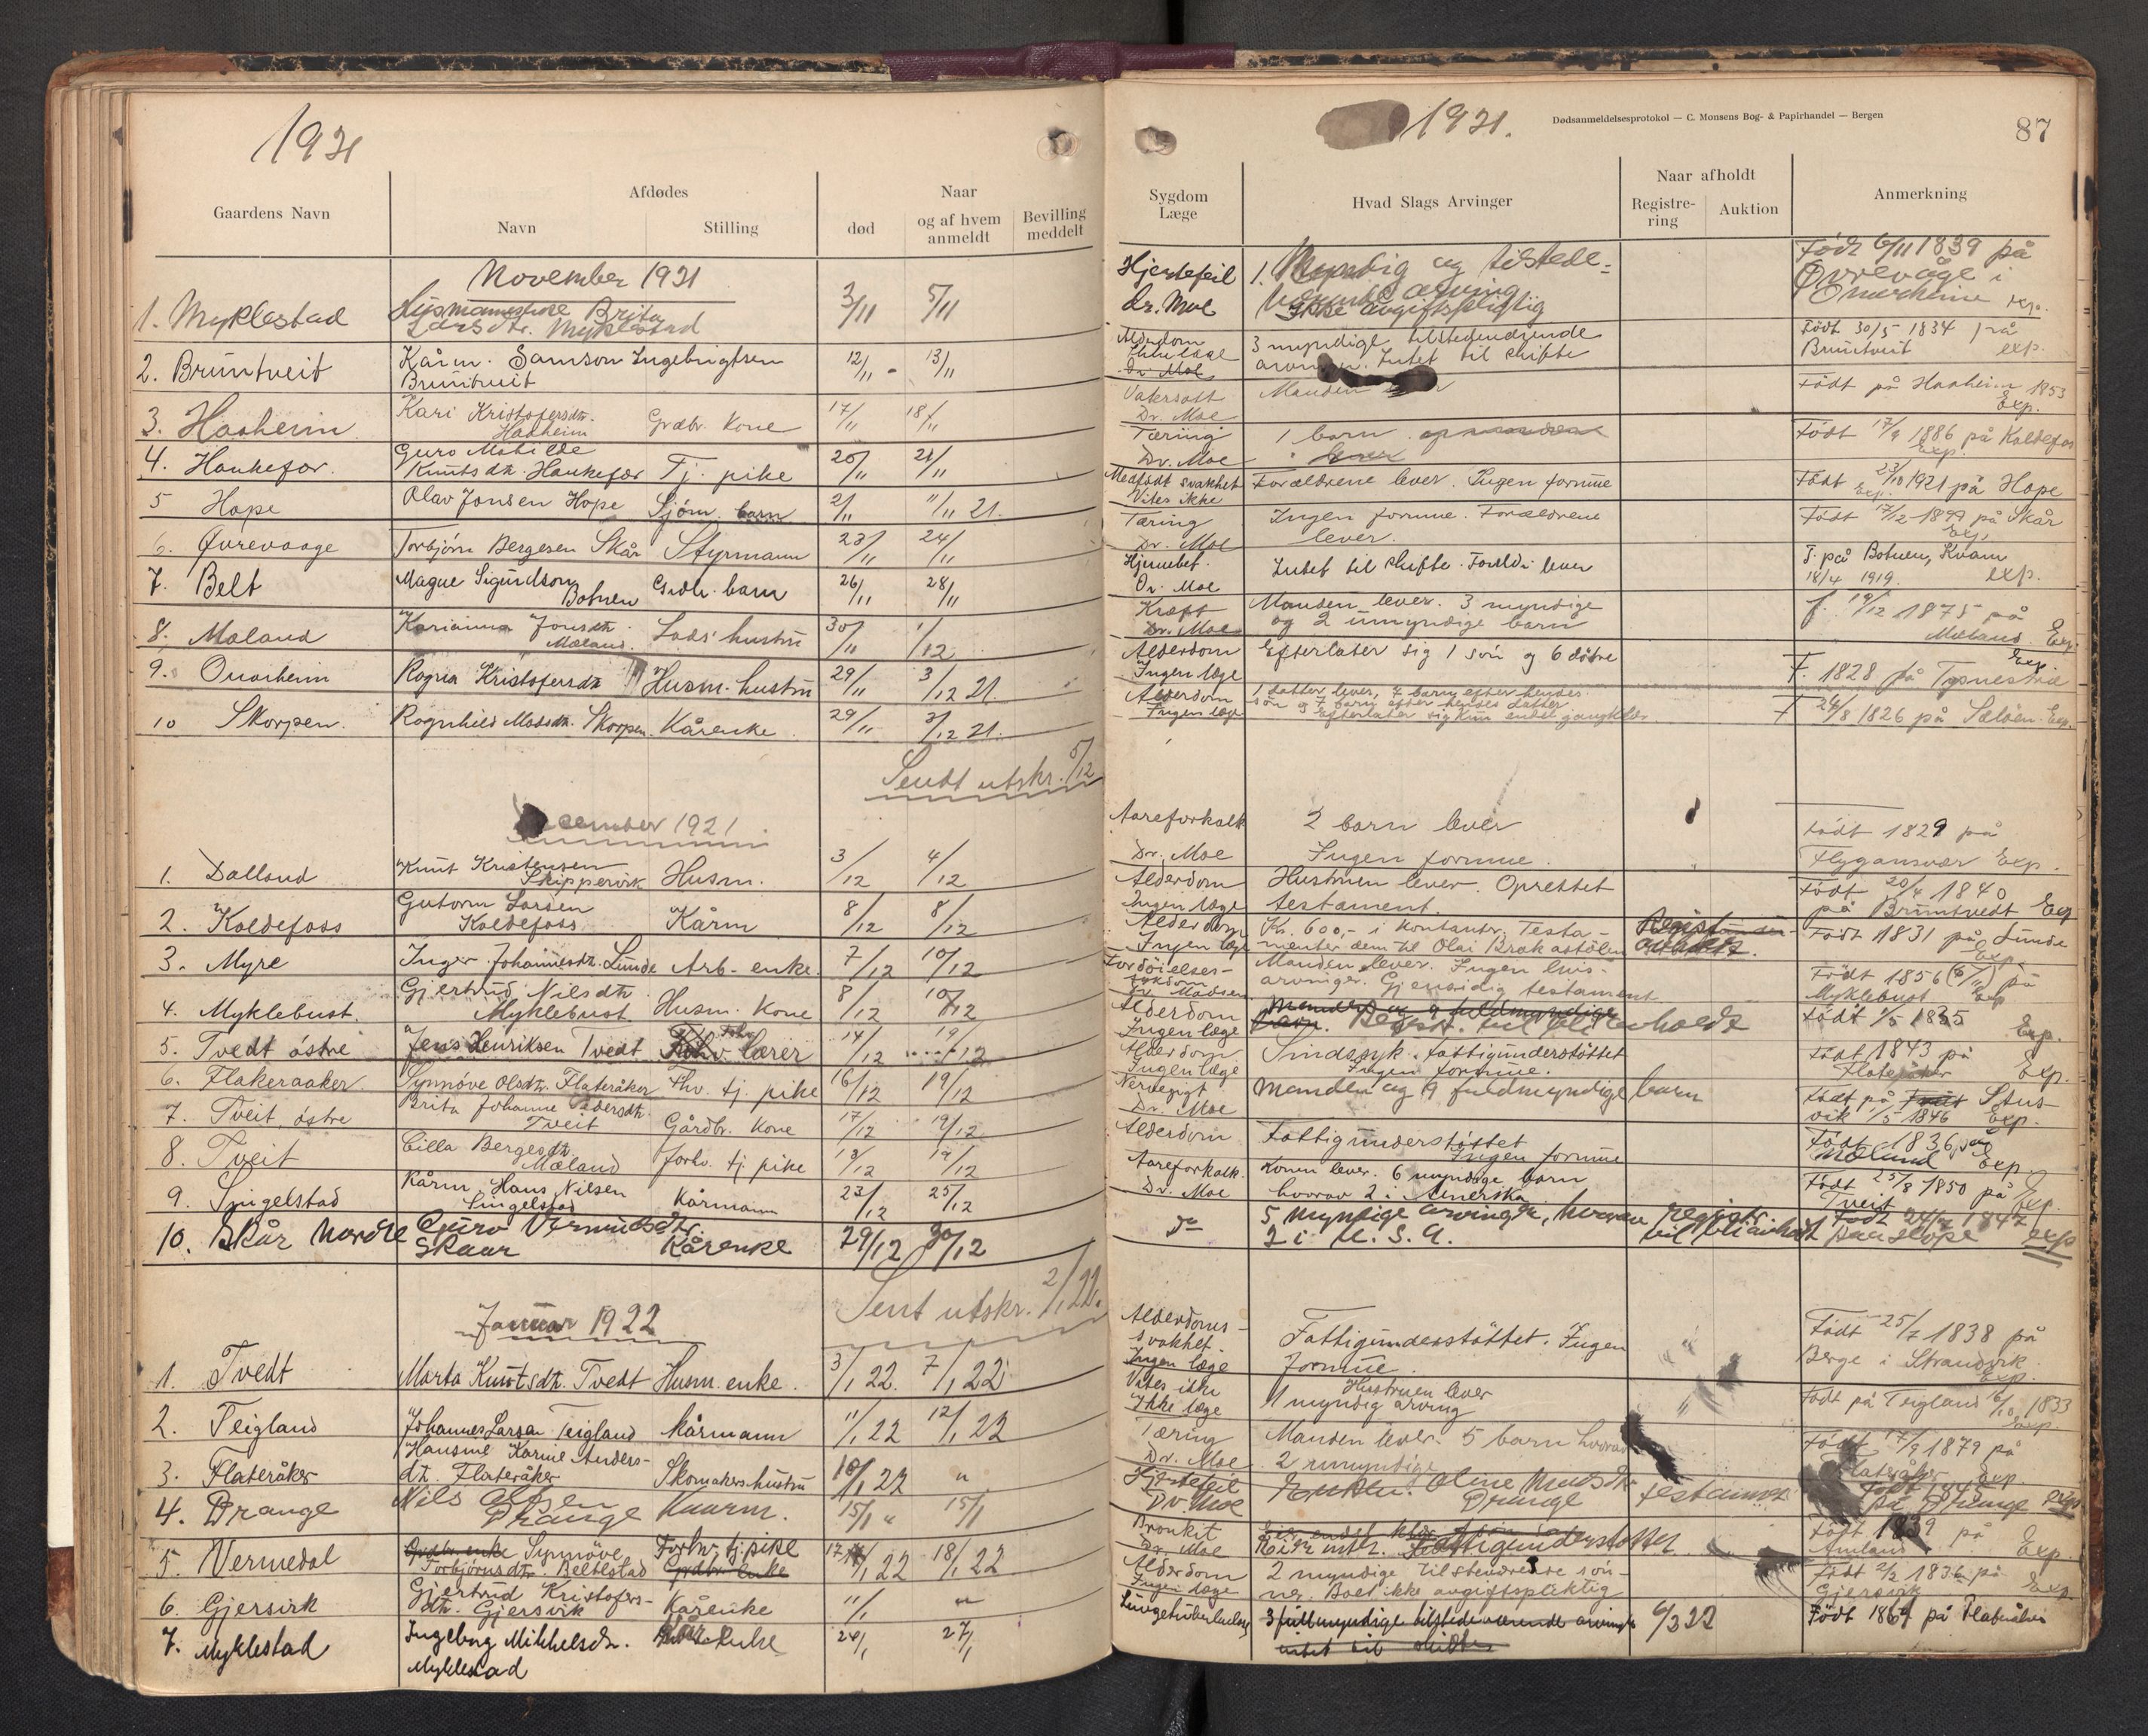 1921
Gaardens Navn
Afdødes
Navn
Stilling
Naar
død
og af hvem anmeldt
Bevilling meddelt
November 1921
1. Myklestad Husmannsenke Brita 3/11 5/11
Larsdtr. Myklestad
2. Bruntveit Kårm. Samson Ingebrigtsen 12/11 - 13/11
Bruntveit
3. Haaheim Kari Kristofersdtr. Grdbr. Kone 17/11 18/11
Haaheim
4. Haukefær. Guro Matilde 20/11 21/11
Knutsdtr. Haukefær Tj. pike
5 Hope Olav Jonsen Hope Sjöm. barn 2/11 11/11 21.
6. Øvrevaage Torbjörn Bergesen Skår Styrmann 23/11 24/11
7. Belt Magne Sigurdson Grdbr. barn 26/11 28/11
Botnen
8. Mæland Karianna Jonsdtr. Lods' hustru 30/11 1/12
Mæland.
9. Onarheim Ragna Kristofersdtr Husm. hustru 29/11 3/12 21.
10 Skorpen. Ragnhild Madsdtr. Skorpen. Kårenke 29/11 3/12 21.
Sendt utskr. 5/12
December 1921
1. Dalland Knut Kristensen Husm. 3/12 4/12
Skippervik
2. Koldefoss Gutorm Larsen Kårm 8/12 8/12
Koldefoss
3. Myre Inger Johannesdtr. Lunde Arb-enke. 7/12 10/12
4. Myklebust. Gjertrud Nilsdtr. Husm. Kone 8/12 10/12
Myklebust
5. Tvedt östre Jens Henriksen Tvedt forhv. lærer 14/12 19/12
6. Flateraaker Synnöve Olsdtr. Flateråker fhv. tj. pike 16/12 19/12
7. Tveit östre Brita Johanne Pedersdtr. Gårdbr. Kone 17/12 19/12
Tveit
8. Tveit Cilla Bergesdtr. forhv. tj. pike 18/12 19/12
Mæland
9. Singelstad Kårm. Hans Nilsen Kårmann 23/12 25/12
Singelstad
10. Skår Nordre Guro Vermundsdtr. Kårenke 29/12 30/12
Skaar
Sent utskr. 2/1 22.
Januar 1922
1. Tvedt Marta Knutsdtr. Tvedt Husm. enke. 3/1 22. 7/1 22
2. Teigland Johannes Larsen Teigland Kårmann 11/1 22 12/1 22
3. Flateråker Hansine Karine Anders- Skomakers hustru 10/1 22 "
dtr. Flateråker
4. Drange Nils Olsen Kaarm. 15/1 " 15/1
Drange
5. Vermedal Grdbr. enke Synnöve Forhv. tj. pike 17/1 22 18/1 22
Torbjörnsdtr. Beltestad Grdbr. enke
6. Gjersvik Gjertrud Kristofers- Kårenke 11/1 "
dtr. Gjersvik
7. Myklestad Ingeborg Mikkelsdtr. enke 24/1 27/1
Myklestad
1921.
Dødsanmeldelsesprotokol — C. Monsens Bog- & Papirhandel — Bergen
87
Sygdom Læge
Hvad Slags Arvinger
Naar afholdt
Registrering
Auktion
Anmerkning
Hjertefeil 1. Myndig og tilstede- Födt 6/11 1839 på
Dr. Moe værende arving Øvrevåge i
Ikke avgiftspligtig Onarheim exp.
Alderdom 3 myndige tilstedeværende Födt 30/5 1834 på
Ikke læge Intet til skifte Bruntveit exp.
Dr. Moe
Vatersott Manden Födt på Haaheim 1853
Dr. Moe Exp.
Tæring 1 barn Födt 17/9 1886 på Koldefos
Dr. Moe lever Exp.
Medfödt svakhet Forældrene lever. Ingen formue Födt 23/10 1921 på Hope
Vites ikke Exp.
Tæring Ingen formue. Forældrene Födt 17/12 1899 på Skår
Dr. Moe lever. Exp.
Hjernebet. Intet til skifte. Foreldr. lever F. på Botnen, Kvam
Dr. Moe 18/4 1919. exp.
Kræft Manden lever. 3 myndige f. 19/12 1875 på
Dr. Moe og 2 umyndige barn Mæland Exp.
Alderdom Efterlater sig 1 sön og 6 dötre Exp.
Ingen læge F. 1828 på
Alderdom 1 datter lever, 7 barn efter hendes
Ingen læge sön og 7 barn efter hendes datter F 24/8 1826 på Sælöen. Exp.
Efterlater sig kun endel gangklær
Aareforkalk 2 barn lever Födt 1829 på
Dr. Moe Ingen formue. Flygansvær Exp.
Alderdom Hustruen lever. Oprettet Födt 20/4 1840
Ingen læge testament. på Bruntvedt Exp
Alderdom Kr. 600,- i kontanter. Testa- Födt 1831 på Lunde
Ingen læge menter dem til Olai Brakastölen Exp.
Fordöielses- Manden lever. Ingen livs- Födt 1856 på
sykdom arvinger. Gjensidig testament Myklebust Exp
Dr. Madsen
Alderdom Manden og 9 fuldmyndige Födt 1/5 1835
Ingen læge barn. Registr. til bli avholdt Exp.
Alderdom Sindssyk. fattigunderstöttet Födt 1843 på
Ingen læge Ingen formue. Flateråker Exp.
Nervegigt Manden og 9 fuldmyndige barn Födt på Tvedt Stus-
Dr. Moe vik 1/5 1846 Exp.
Alderdom Fattigunderstöttet Födt 1836 på
Ingen formue Mælund Exp.
Aareforkalk. Konen lever. 6 myndige barn Födt 25/8 1850 på
Dr. Moe hvorav 2 i Amerika Tveit Exp.
Do 5 myndige arvinger, hvorav registr. Födt 1847
2 i U. S. A. vil bli avholdt paa Hope exp
Alderdoms- Födt 25/7 1838 på
svakhet. Fattigunderstöttet. Ingen Berge i Strandvik
Ingen læge formue. Exp.
Vites ikke Hustruen lever Födt på Teigland 6/10 1833
Ikke læge 1 myndig arving Exp.
Tæring Manden lever. 5 barn hvorav Födt 17/9 1879 på
Dr. Moe 2 umyndige Flateråker Exp.
Hjertefeil Enken: Oline Madsdtr Testament Födt 1845
Dr Moe Drange på Drange exp
Bronkit Födt 1839 på
Dr. Moe Fattigunderstöttet Exp.
Alderdom 2 myndige tilstedeværende sön- Födt 2/2 1836 på
Ingen læge ner. Boet ikke avgiftspliktig Gjersvik Exp.
Lungetuberkulose 3 fullmyndige tilstedeværende arvinger 6/3 22 Födt 1869 på Flateråker
intet til skifte